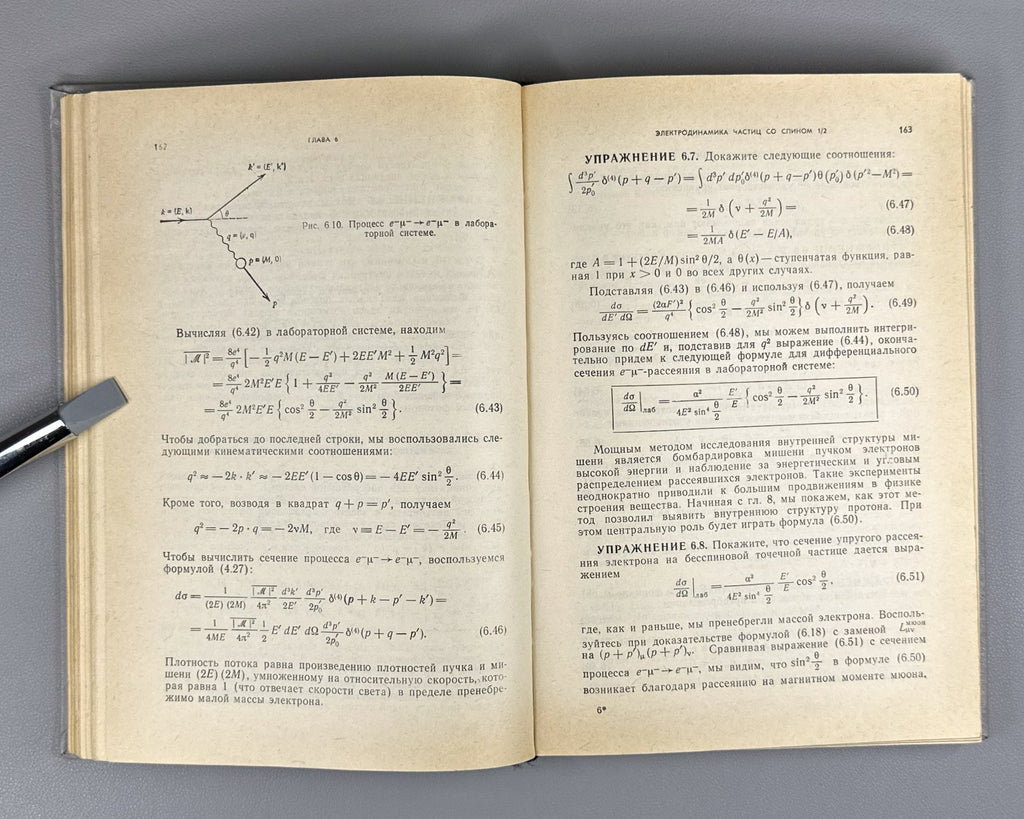 162
ГЛАВА 6
k' = (E', k')
k = (E, k)
θ
q = (ν, q)
p = (M, 0)
p'
Рис. 6.10. Процесс e⁻μ⁻ → e⁻μ⁻ в лабора-
торной системе.
Вычисляя (6.42) в лабораторной системе, находим
|ℳ|² = 8e⁴/q⁴ [− 1/2 q²M (E − E') + 2EE'M² + 1/2 M²q²] =
= 8e⁴/q⁴ 2M²E'E {1 + q²/4EE' − q²/2M² M (E − E')/2EE'} =
= 8e⁴/q⁴ 2M²E'E {cos² θ/2 − q²/2M² sin² θ/2}. (6.43)
Чтобы добраться до последней строки, мы воспользовались сле-
дующими кинематическими соотношениями:
q² ≈ − 2k · k' ≈ − 2EE' (1 − cos θ) = − 4EE' sin² θ/2. (6.44)
Кроме того, возводя в квадрат q + p = p', получаем
q² = − 2p · q = − 2νM, где ν ≡ E − E' = − q²/2M. (6.45)
Чтобы вычислить сечение процесса e⁻μ⁻ → e⁻μ⁻, воспользуемся
формулой (4.27):
dσ = 1/(2E) (2M) |ℳ|²/4π² d³k'/2E' d³p'/2p'₀ δ⁽⁴⁾ (p + k − p' − k') =
= 1/4ME |ℳ|²/4π² 1/2 E' dE' dΩ d³p'/2p'₀ δ⁽⁴⁾ (p + q − p'). (6.46)
Плотность потока равна произведению плотностей пучка и ми-
шени (2E) (2M), умноженному на относительную скорость, кото-
рая равна 1 (что отвечает скорости света) в пределе пренебре-
жимо малой массы электрона.
ЭЛЕКТРОДИНАМИКА ЧАСТИЦ СО СПИНОМ 1/2
163
УПРАЖНЕНИЕ 6.7. Докажите следующие соотношения:
∫ d³p'/2p'₀ δ⁽⁴⁾ (p + q − p') = ∫ d³p' dp'₀ δ⁽⁴⁾ (p + q − p') θ (p'₀) δ (p'² − M²) =
= 1/2M δ (ν + q²/2M) = (6.47)
= 1/2MA δ (E' − E/A), (6.48)
где A = 1 + (2E/M) sin² θ/2, а θ (x) — ступенчатая функция, рав-
ная 1 при x > 0 и 0 во всех других случаях.
Подставляя (6.43) в (6.46) и используя (6.47), получаем
dσ/dE' dΩ = (2αE')²/q⁴ {cos² θ/2 − q²/2M² sin² θ/2} δ (ν + q²/2M). (6.49)
Пользуясь соотношением (6.48), мы можем выполнить интегри-
рование по dE' и, подставив для q² выражение (6.44), оконча-
тельно придем к следующей формуле для дифференциального
сечения e⁻μ⁻-рассеяния в лабораторной системе:
dσ/dΩ |лаб = α²/4E² sin⁴ θ/2 E'/E {cos² θ/2 − q²/2M² sin² θ/2}. (6.50)
Мощным методом исследования внутренней структуры ми-
шени является бомбардировка мишени пучком электронов
высокой энергии и наблюдение за энергетическим и угловым
распределением рассеявшихся электронов. Такие эксперименты
неоднократно приводили к большим продвижениям в физике
строения вещества. Начиная с гл. 8, мы покажем, как этот ме-
тод позволил выявить внутреннюю структуру протона. При
этом центральную роль будет играть формула (6.50).
УПРАЖНЕНИЕ 6.8. Покажите, что сечение упругого рассея-
ния электрона на бесспиновой точечной частице дается выра-
жением
dσ/dΩ |лаб = α²/4E² sin⁴ θ/2 E'/E cos² θ/2, (6.51)
где, как и раньше, мы пренебрегли массой электрона. Восполь-
зуйтесь при доказательстве формулой (6.18) с заменой L^мюон_μν
на (p + p')_μ (p + p')_ν. Сравнивая выражение (6.51) с сечением
процесса e⁻μ⁻ → e⁻μ⁻, мы видим, что sin² θ/2 в формуле (6.50)
возникает благодаря рассеянию на магнитном моменте мюона,
6*